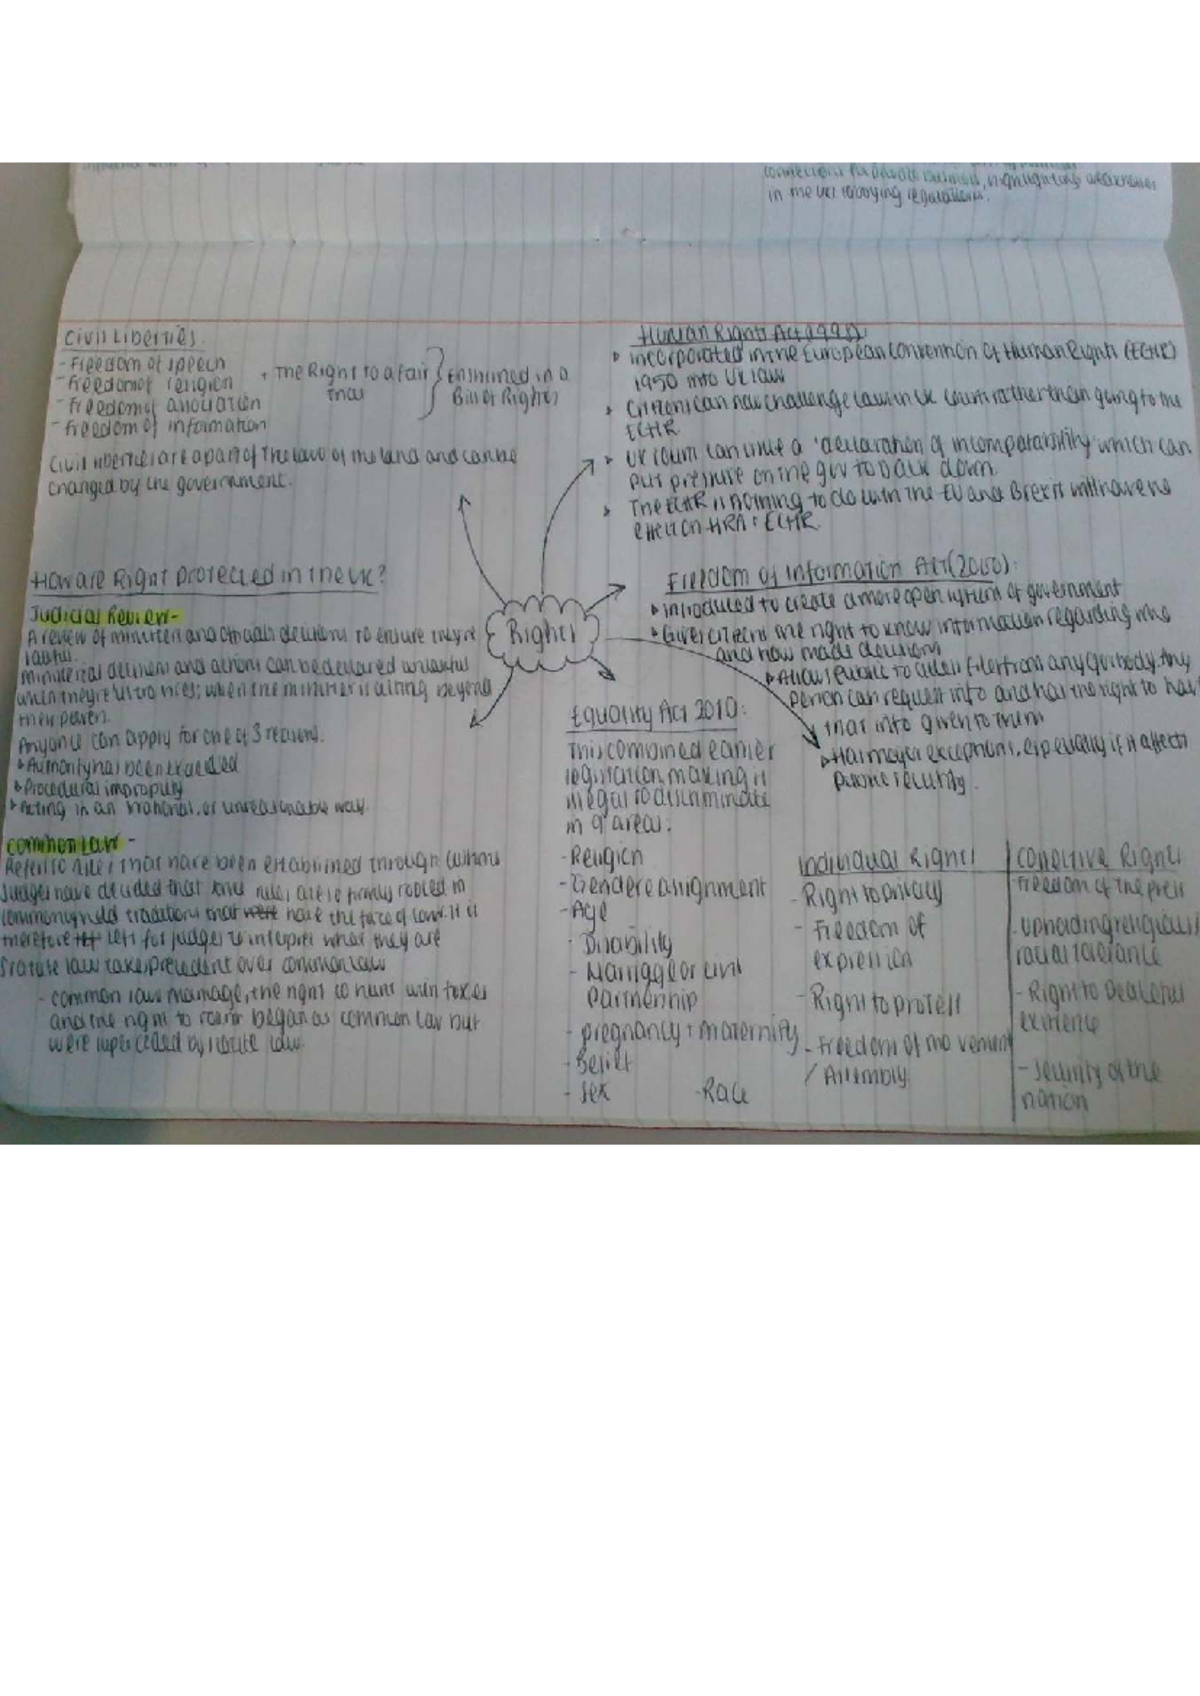 in the UK lobbying regulations.
Civil Liberties.
- Freedom of speech
- Freedom of religion
- Freedom of association
- Freedom of information
+ The Right to a fair
trial
Enshrined in a
Bill of Rights
Civil liberties are a part of the laws of the land and can be
changed by the government.
Human Rights Act (1998):
incorporated in the European Convention of Human Rights (ECHR)
1950 into UK law
Citizens can now challenge laws in UK courts rather than going to the
ECHR
UK courts can issue a 'declaration of incomparability' which can
put pressure on the gov to back down.
The ECHR is nothing to do with the EU and Brexit will have no
effect on HRA + ECHR.
How are Right protected in the UK?
Judicial Review-
A review of ministers and officials decisions to ensure they're
lawful.
Ministerial decisions and actions can be declared unlawful
when they're ultra vires; when the minister is acting beyond
their powers.
Anyone can apply for one of 3 reasons.
Authority has been exceeded
Procedural impropriety
Acting in an irrational, or unreasonable way.
Common Law -
Refers to rules that have been established through customs
Judges have decided that some rules are so firmly rooted in
commonly held traditions that were have the force of law. It is
therefore left for judges to interpret what they are
Statute law takes precedent over common law
- common laws marriage, the right to hunt with foxes
and the right to roam began as common law but
were superceded by statute law.
Rights
Freedom of Information Act (2000):
introduced to create a more open system of government
Gives citizens the right to know information regarding who
and how made decisions
Allows public to access files from any gov body. Any
person can request info and has the right to have
that info given to them
Has major exceptions, especially if it affects
public security.
Equality Act 2010:
This combined earlier
legislation, making it
illegal to discriminate
in 9 areas:
- Religion
- Gender reassignment
- Age
- Disability
- Marriage or civil
partnership
- pregnancy + maternity
- Belief
- Sex
- Race
Individual Rights
- Right to privacy
- Freedom of
expression
- Right to protest
- Freedom of movement
/ Assembly
Collective Rights
- Freedom of the press
- upholding religious
racial tolerance
- Right to peaceful
existence
- Security of the
nation